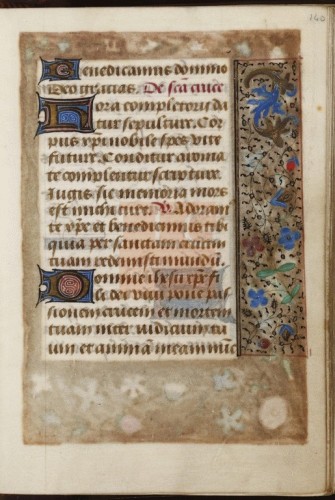 140
Benedicamus domino
Deo gratias. De sca cruce
Hora completorii da
tur sepulture. Cor
pus xpi nobile spes vite
future. Conditur aromate
complentur scripture
Iugis sit memoria mors
est michi cure. V. Adoram
te xpe et benedicim tibi
quia per sanctam crucem
tuam redemisti mundu.
Domine ihesu xpe fi
li dei vivi pone pas
sionem crucem et mortem
tuam inter iudicium tu
um et animam meam nunc